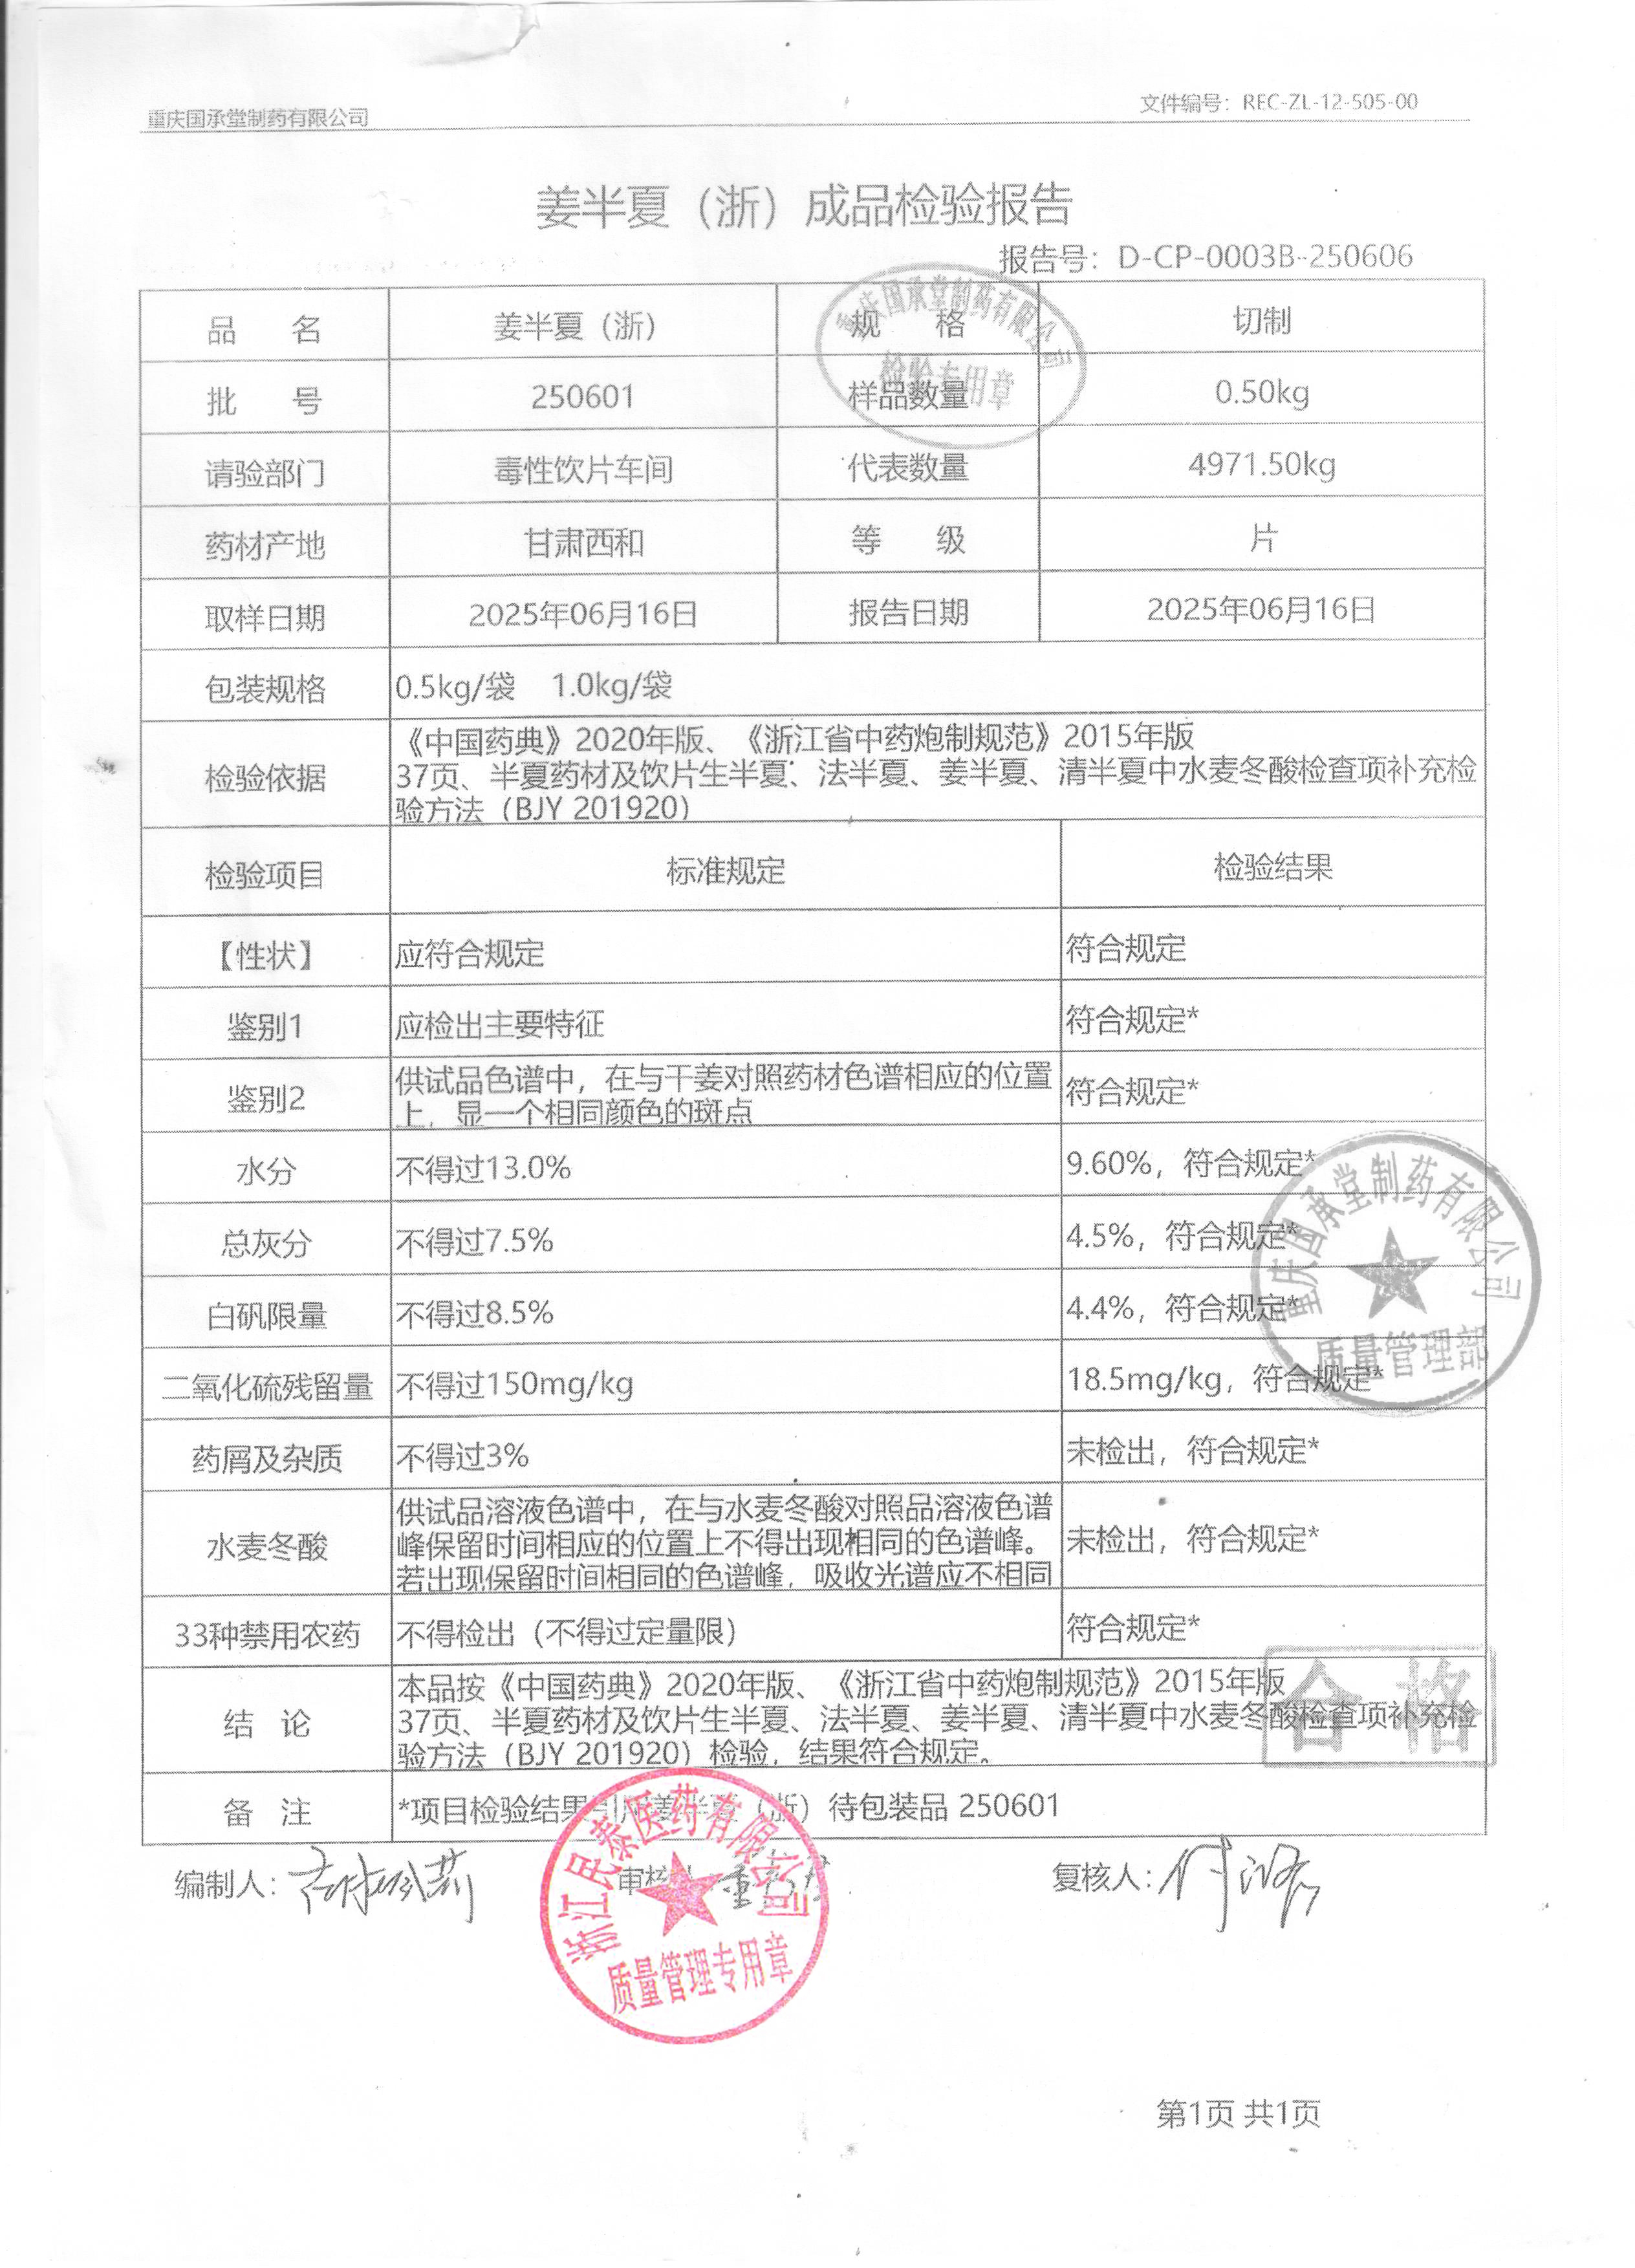 重庆国承堂制药有限公司 文件编号：REC-ZL-12-505-00
姜半夏（浙）成品检验报告
报告号：D-CP-0003B-250606
品 名 姜半夏（浙） 规 格 切制
批 号 250601 样品数量 0.50kg
请验部门 毒性饮片车间 代表数量 4971.50kg
药材产地 甘肃西和 等 级 片
取样日期 2025年06月16日 报告日期 2025年06月16日
包装规格 0.5kg/袋 1.0kg/袋
检验依据
《中国药典》2020年版、《浙江省中药炮制规范》2015年版
37页、半夏药材及饮片生半夏、法半夏、姜半夏、清半夏中水麦冬酸检查项补充检
验方法（BJY 201920）
检验项目 标准规定 检验结果
【性状】 应符合规定 符合规定
鉴别1 应检出主要特征 符合规定*
鉴别2
供试品色谱中，在与干姜对照药材色谱相应的位置
上，显一个相同颜色的斑点
符合规定*
水分 不得过13.0% 9.60%，符合规定*
总灰分 不得过7.5% 4.5%，符合规定*
白矾限量 不得过8.5% 4.4%，符合规定*
二氧化硫残留量 不得过150mg/kg 18.5mg/kg，符合规定*
药屑及杂质 不得过3% 未检出，符合规定*
水麦冬酸
供试品溶液色谱中，在与水麦冬酸对照品溶液色谱
峰保留时间相应的位置上不得出现相同的色谱峰。
若出现保留时间相同的色谱峰，吸收光谱应不相同
未检出，符合规定*
33种禁用农药 不得检出（不得过定量限） 符合规定*
结 论
本品按《中国药典》2020年版、《浙江省中药炮制规范》2015年版
37页、半夏药材及饮片生半夏、法半夏、姜半夏、清半夏中水麦冬酸检查项补充检
验方法（BJY 201920）检验，结果符合规定。
备 注 *项目检验结果引用姜半夏（浙）待包装品 250601
编制人： 审核 复核人：
重庆国承堂制药有限公司
检验专用章
重庆国承堂制药有限公司
质量管理部
合格
浙江民泰医药有限公司
质量管理专用章
第1页 共1页